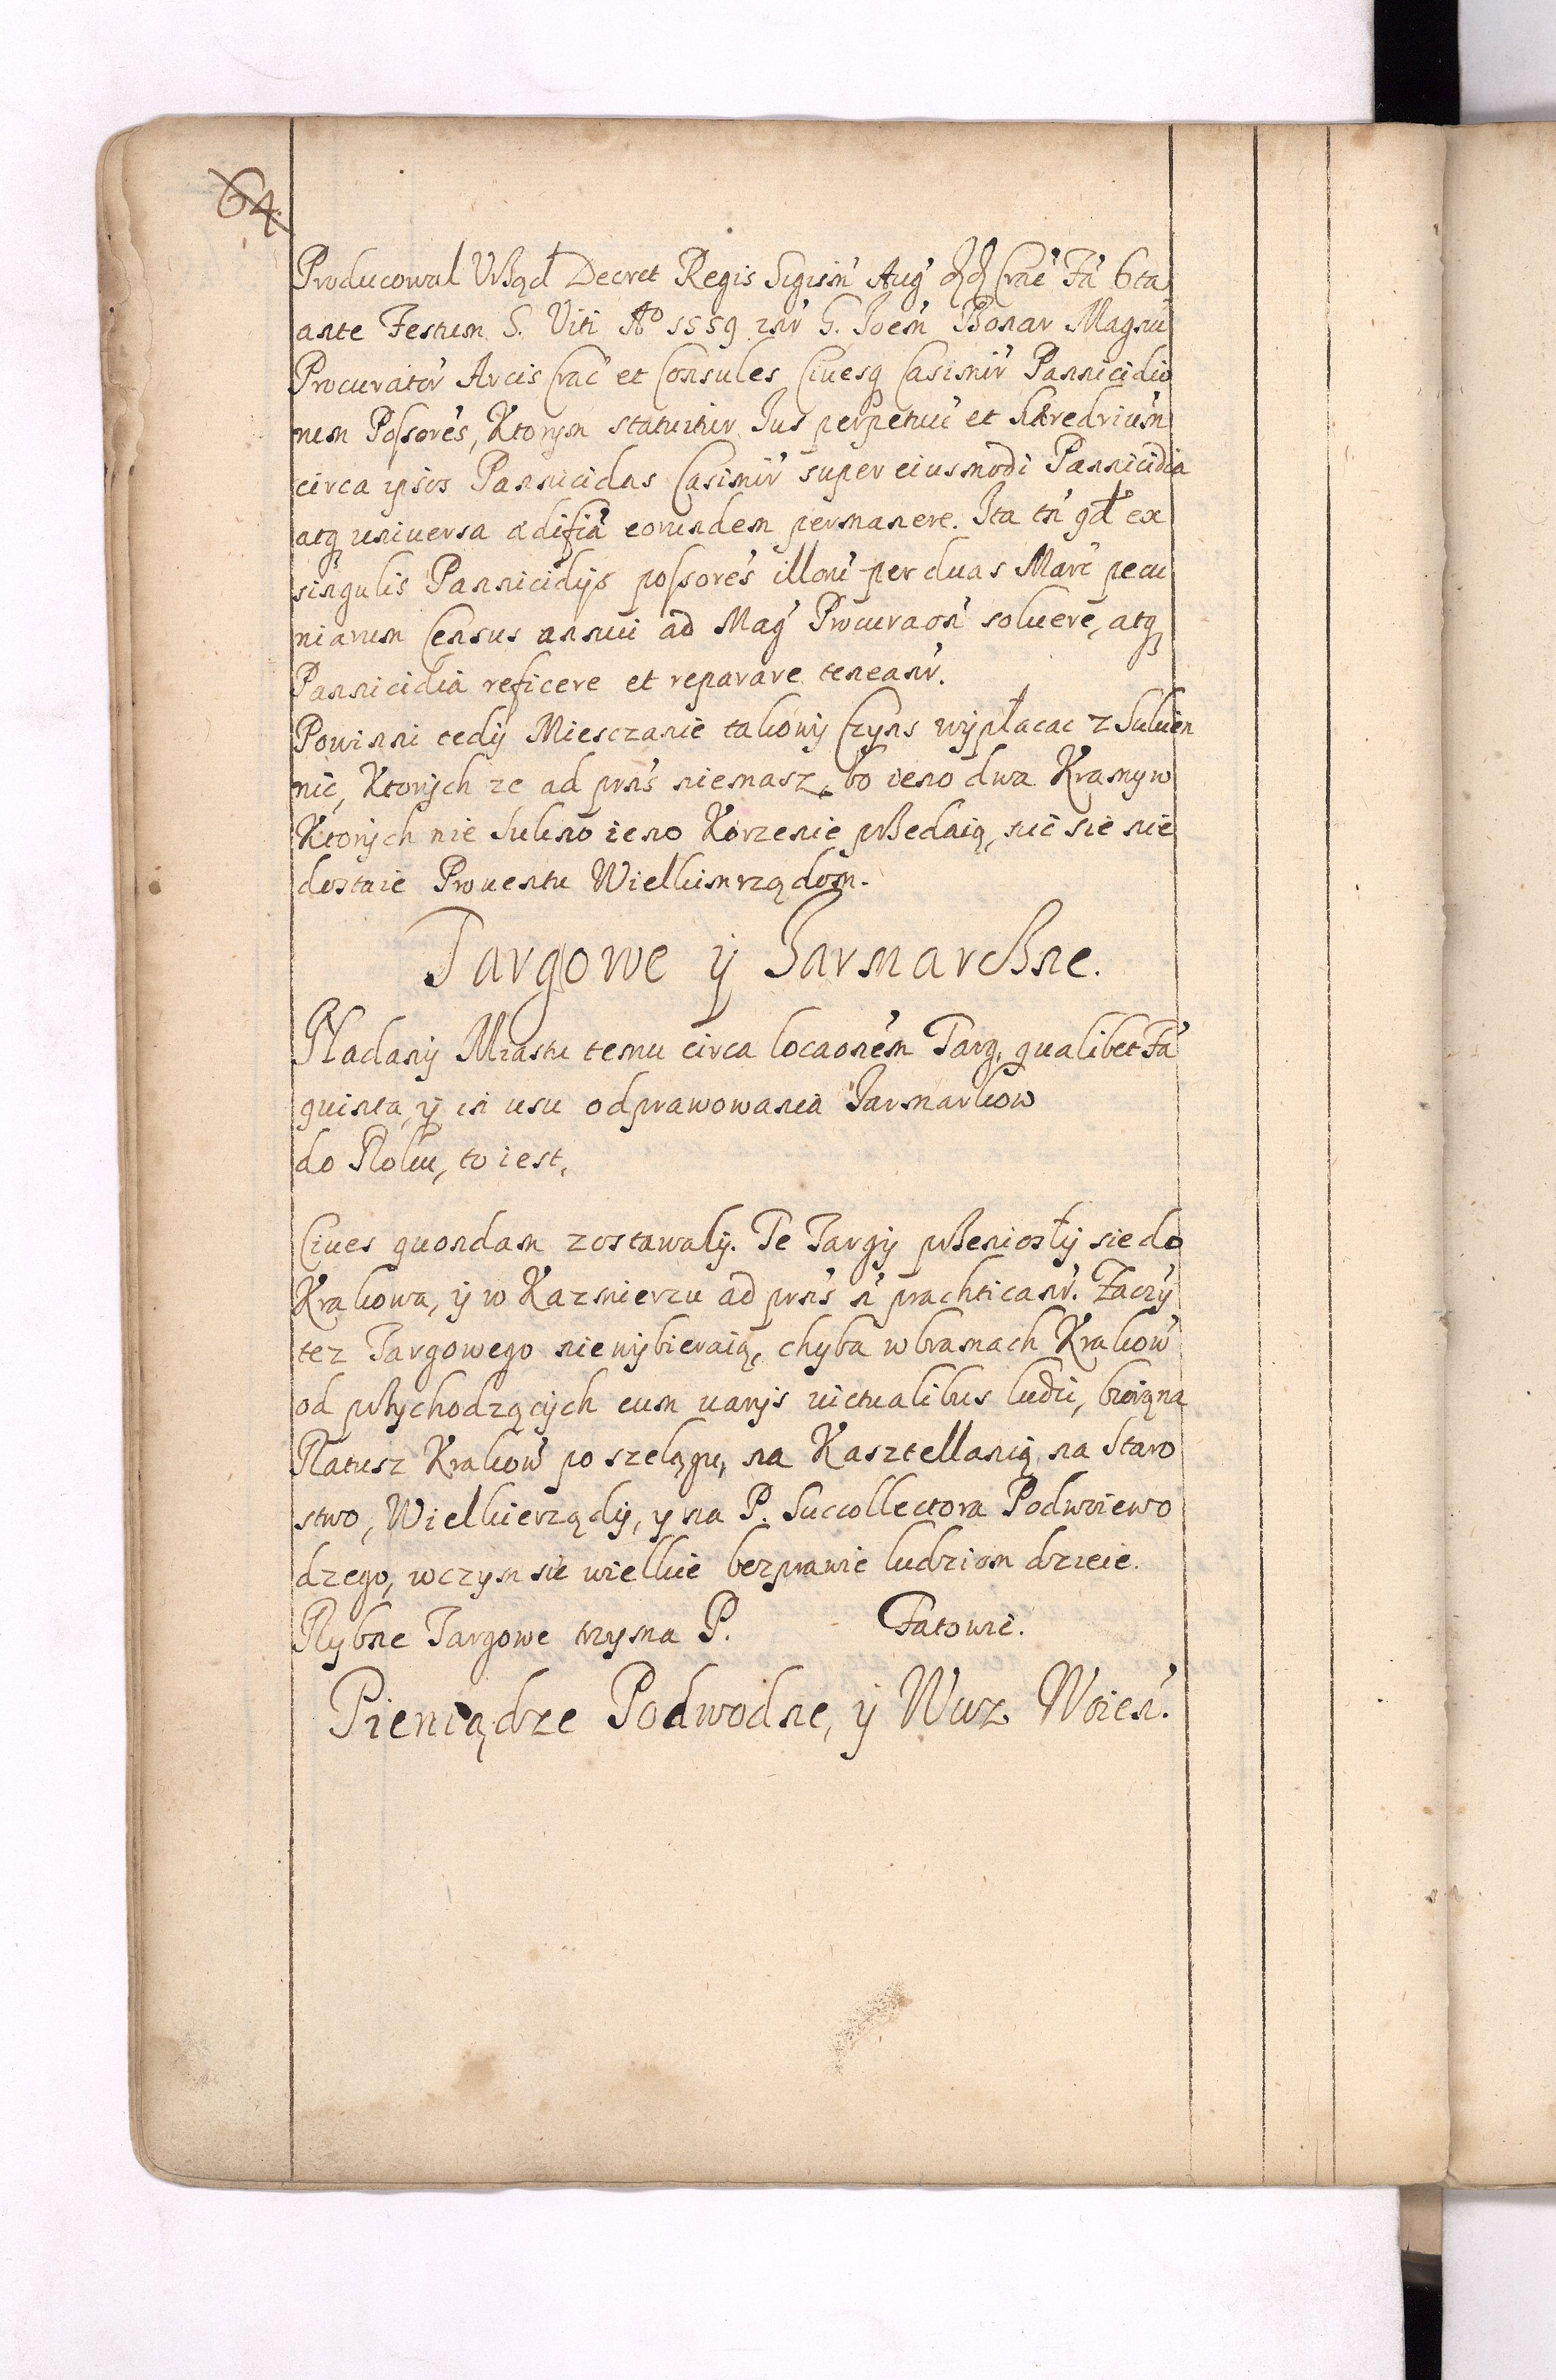 64.
Producowal Vrząd Decret Regis Sigism̃ Aug̃ Crac̃ Fã 6ta
ante Festum S. Viti Aº 1559 inr̃ G. Joem̃ Bonar Magnũ
Procurator̃ Arcis Crac̃ et Consules Ciuesq Casimir̃ Pannicidio
rum Possores̃, Ktorym statuitur Jus perpetuũ et hæredriũm
circa ipsos Pannicidas Casimir̃ super eiusmodi Pannicidia
atq vniuersa ædifia eorundem permanere. Ita tñ qd ex
singulis Pannicidijs possores̃ illorũ per duas Marc̃ pecu
niarum Census annui ad Mag̃ Procuraon̄ soluere, atq
Pannicidia reficere et reparare teneanr̃.
Powinni tedÿ Miesczanie takowÿ Czyns wÿpłacac z Sukien
nic, Ktorÿch ze ad prns̃ niemasz, bo ieno dwa Kramy w
Ktorÿch nie Sukno ieno Korzenie przedaią, nic sie nie
dostaie Prouentu Wielkimrządom.
Targowe ÿ Jarmarczne.
Nadanÿ Miastu temu circa locaonem̃ Targ, qualibet Fã
quinta, ÿ in usu odprawowania Jarmarkow
do Roku, to iest,
Ciues quondam zostawalÿ. Te Targÿ przeniosłÿ sie do
Krakowa, ÿ w Kazmierzu ad prns̃ ñ prachticanr̃. Zaczÿ
tez Targowego niewÿbieraią, chyba w bramach Krakow̃
od przÿchodzącÿch cum varijs victualibus ludzi, biorą na
Ratusz Krakow̃ po szelągu, na Kasztellanią, na Staro
stwo, Wielkierządÿ, y na P. Succollectora Podwoiewo
dzego, w czym sie wielkie bezprawie ludziom dzieie.
Rybne Targowe trzyma P. Fatowic.
Pieniądze Podwodne, ÿ Wuz Woień.